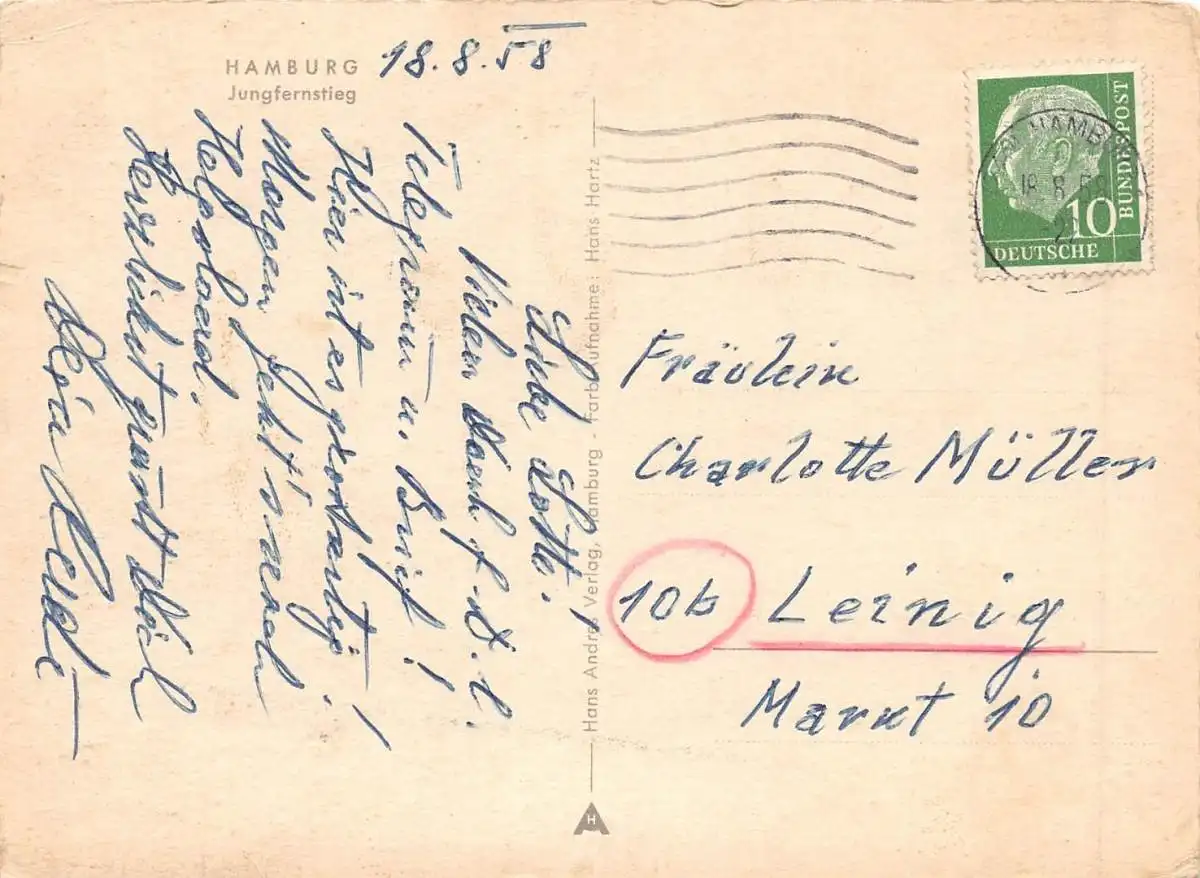 HAMBURG
Jungfernstieg
18.8.58
Liebe Lotti!
Vielen Dank f. d. l.
Telegramm u. Brief!
Hier ist es großartig!
Morgen geht's nach
Helgoland.
Herzlichst grüßt Dich
Dein
Hans Andres Verlag, Hamburg - Farb-Aufnahme: Hans Hartz
H
HAMBURG
18.8.58
10
DEUTSCHE
BUNDESPOST
Fräulein
Charlotte Müller
10b Leinig
Markt 10